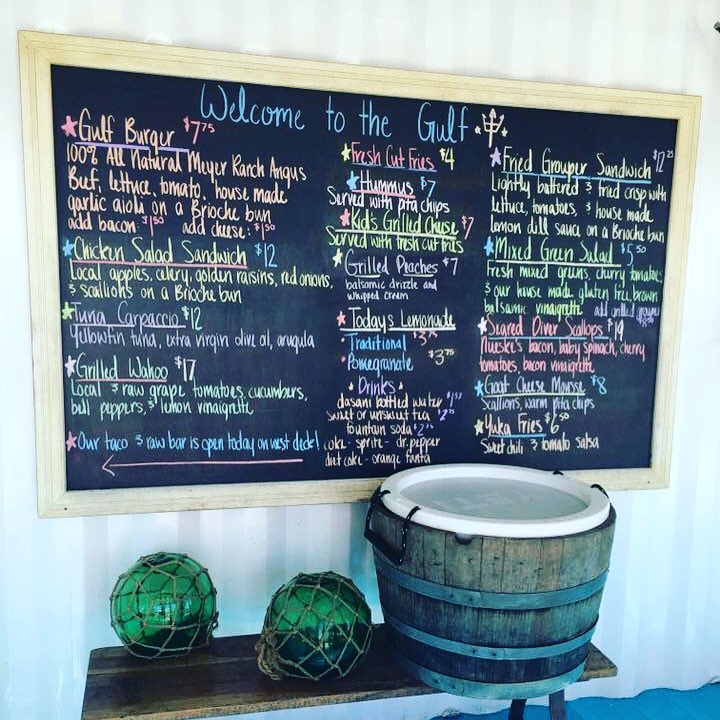 Welcome to the Gulf
Gulf Burger $7.75
100% All Natural Meyer Ranch Angus
Beef, lettuce, tomato, house made
garlic aioli on a Brioche bun
add bacon: $1.50 add cheese: $1.50
Chicken Salad Sandwich $12
Local apples, celery, golden raisins, red onions,
& scallions on a Brioche bun
Tuna Carpaccio $12
Yellowfin tuna, extra virgin olive oil, arugula
Grilled Wahoo $17
Local & raw grape tomatoes, cucumbers,
bell peppers, & lemon vinaigrette
Our taco & raw bar is open today on west deck!
Fresh Cut Fries $4
Hummus $7
Served with pita chips
Kid's Grilled Cheese $7
Served with fresh cut fries
Grilled Peaches $7
balsamic drizzle and
whipped cream
Today's Lemonade
Traditional $3.75
Pomegranate $3.75
Drinks
dasani bottled water
sweet or unsweet tea $2.75
fountain soda
coke - sprite - dr. pepper
diet coke - orange fanta
Fried Grouper Sandwich $12.25
Lightly battered & fried crisp with
lettuce, tomatoes, & house made
lemon dill sauce on a Brioche bun
Mixed Green Salad $5.50
Fresh mixed greens, cherry tomatoes
& our house made gluten free brown
balsamic vinaigrette add grilled
Seared Diver Scallops $14
Nueske's bacon, baby spinach, cherry
tomatoes, bacon vinaigrette
Goat Cheese Mousse $8
Scallions, warm pita chips
Yuka Fries $6.50
Sweet chili & tomato salsa